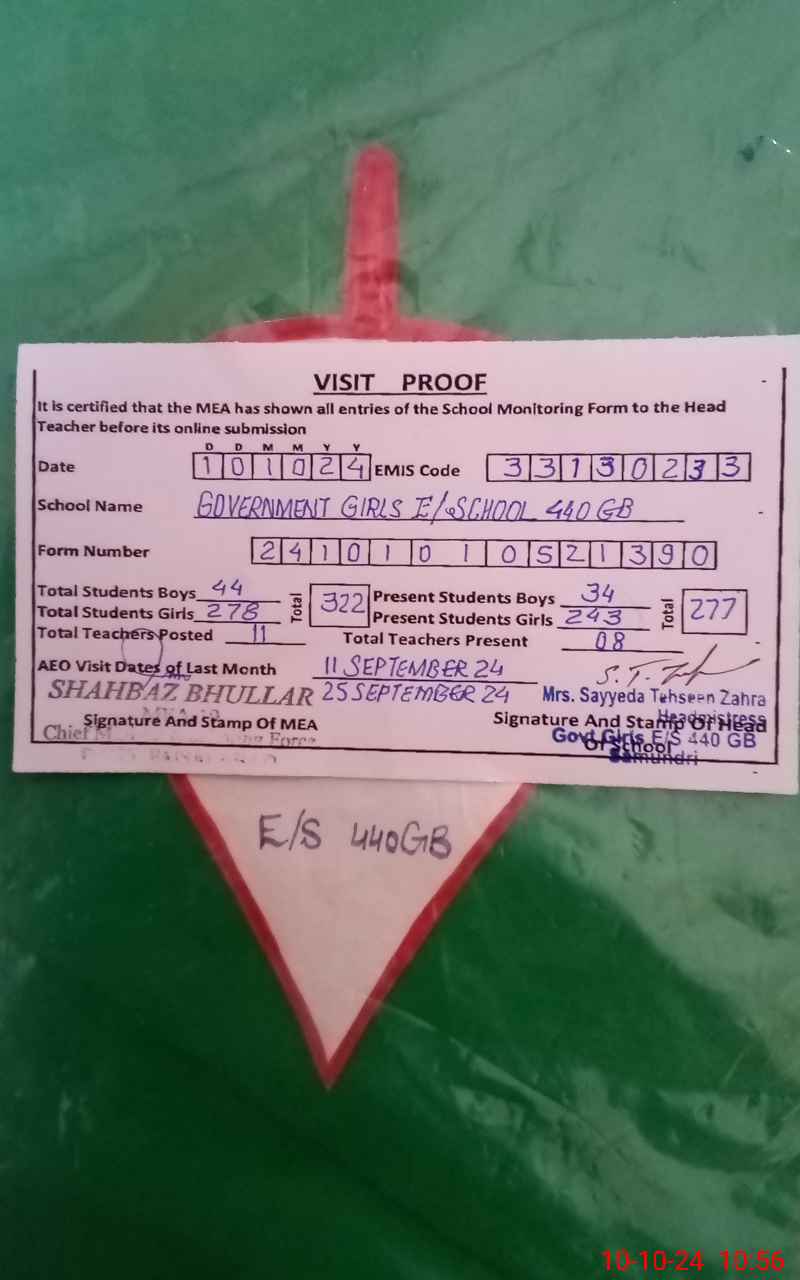 VISIT PROOF
It is certified that the MEA has shown all entries of the School Monitoring Form to the Head
Teacher before its online submission
D D M M Y Y
Date 1 0 1 0 2 4 EMIS Code 3 3 1 3 0 2 3 3
School Name GOVERNMENT GIRLS E/SCHOOL 440 GB
Form Number 2 4 1 0 1 0 1 0 5 2 1 3 9 0
Total Students Boys 44 Total 322 Present Students Boys 34 Total 277
Total Students Girls 278 Present Students Girls 243
Total Teachers Posted 11 Total Teachers Present 08
AEO Visit Dates of Last Month 11 SEPTEMBER 24
SHAHBAZ BHULLAR 25 SEPTEMBER 24 Mrs. Sayyeda Tehseen Zahra
Headmistress
Signature And Stamp Of MEA Signature And Stamp Of Head
Of School
Chief Force
Govt Girls E/S 440 GB
Samundri
E/S 440GB
10-10-24 10:56